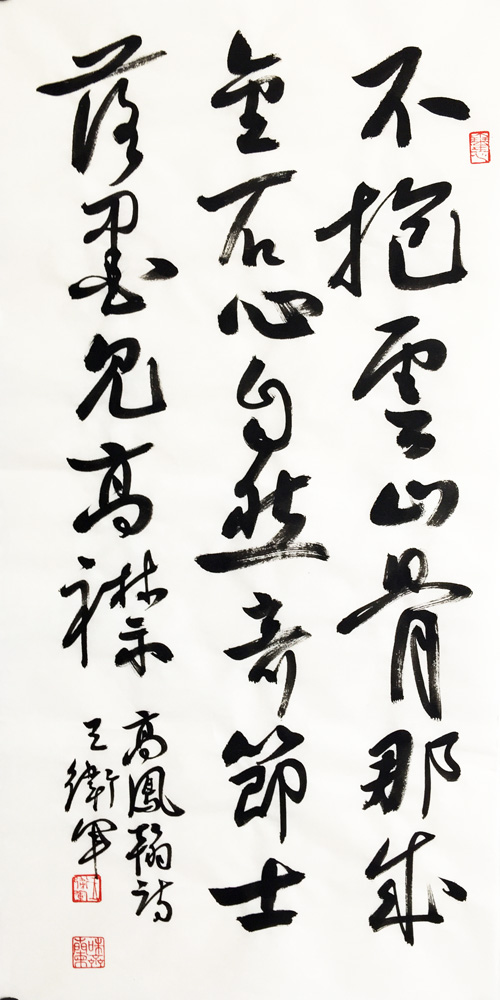 不抱雲山骨那成
金石心自然奇節士
落墨見高襟
高鳳翰詩
王衛軍